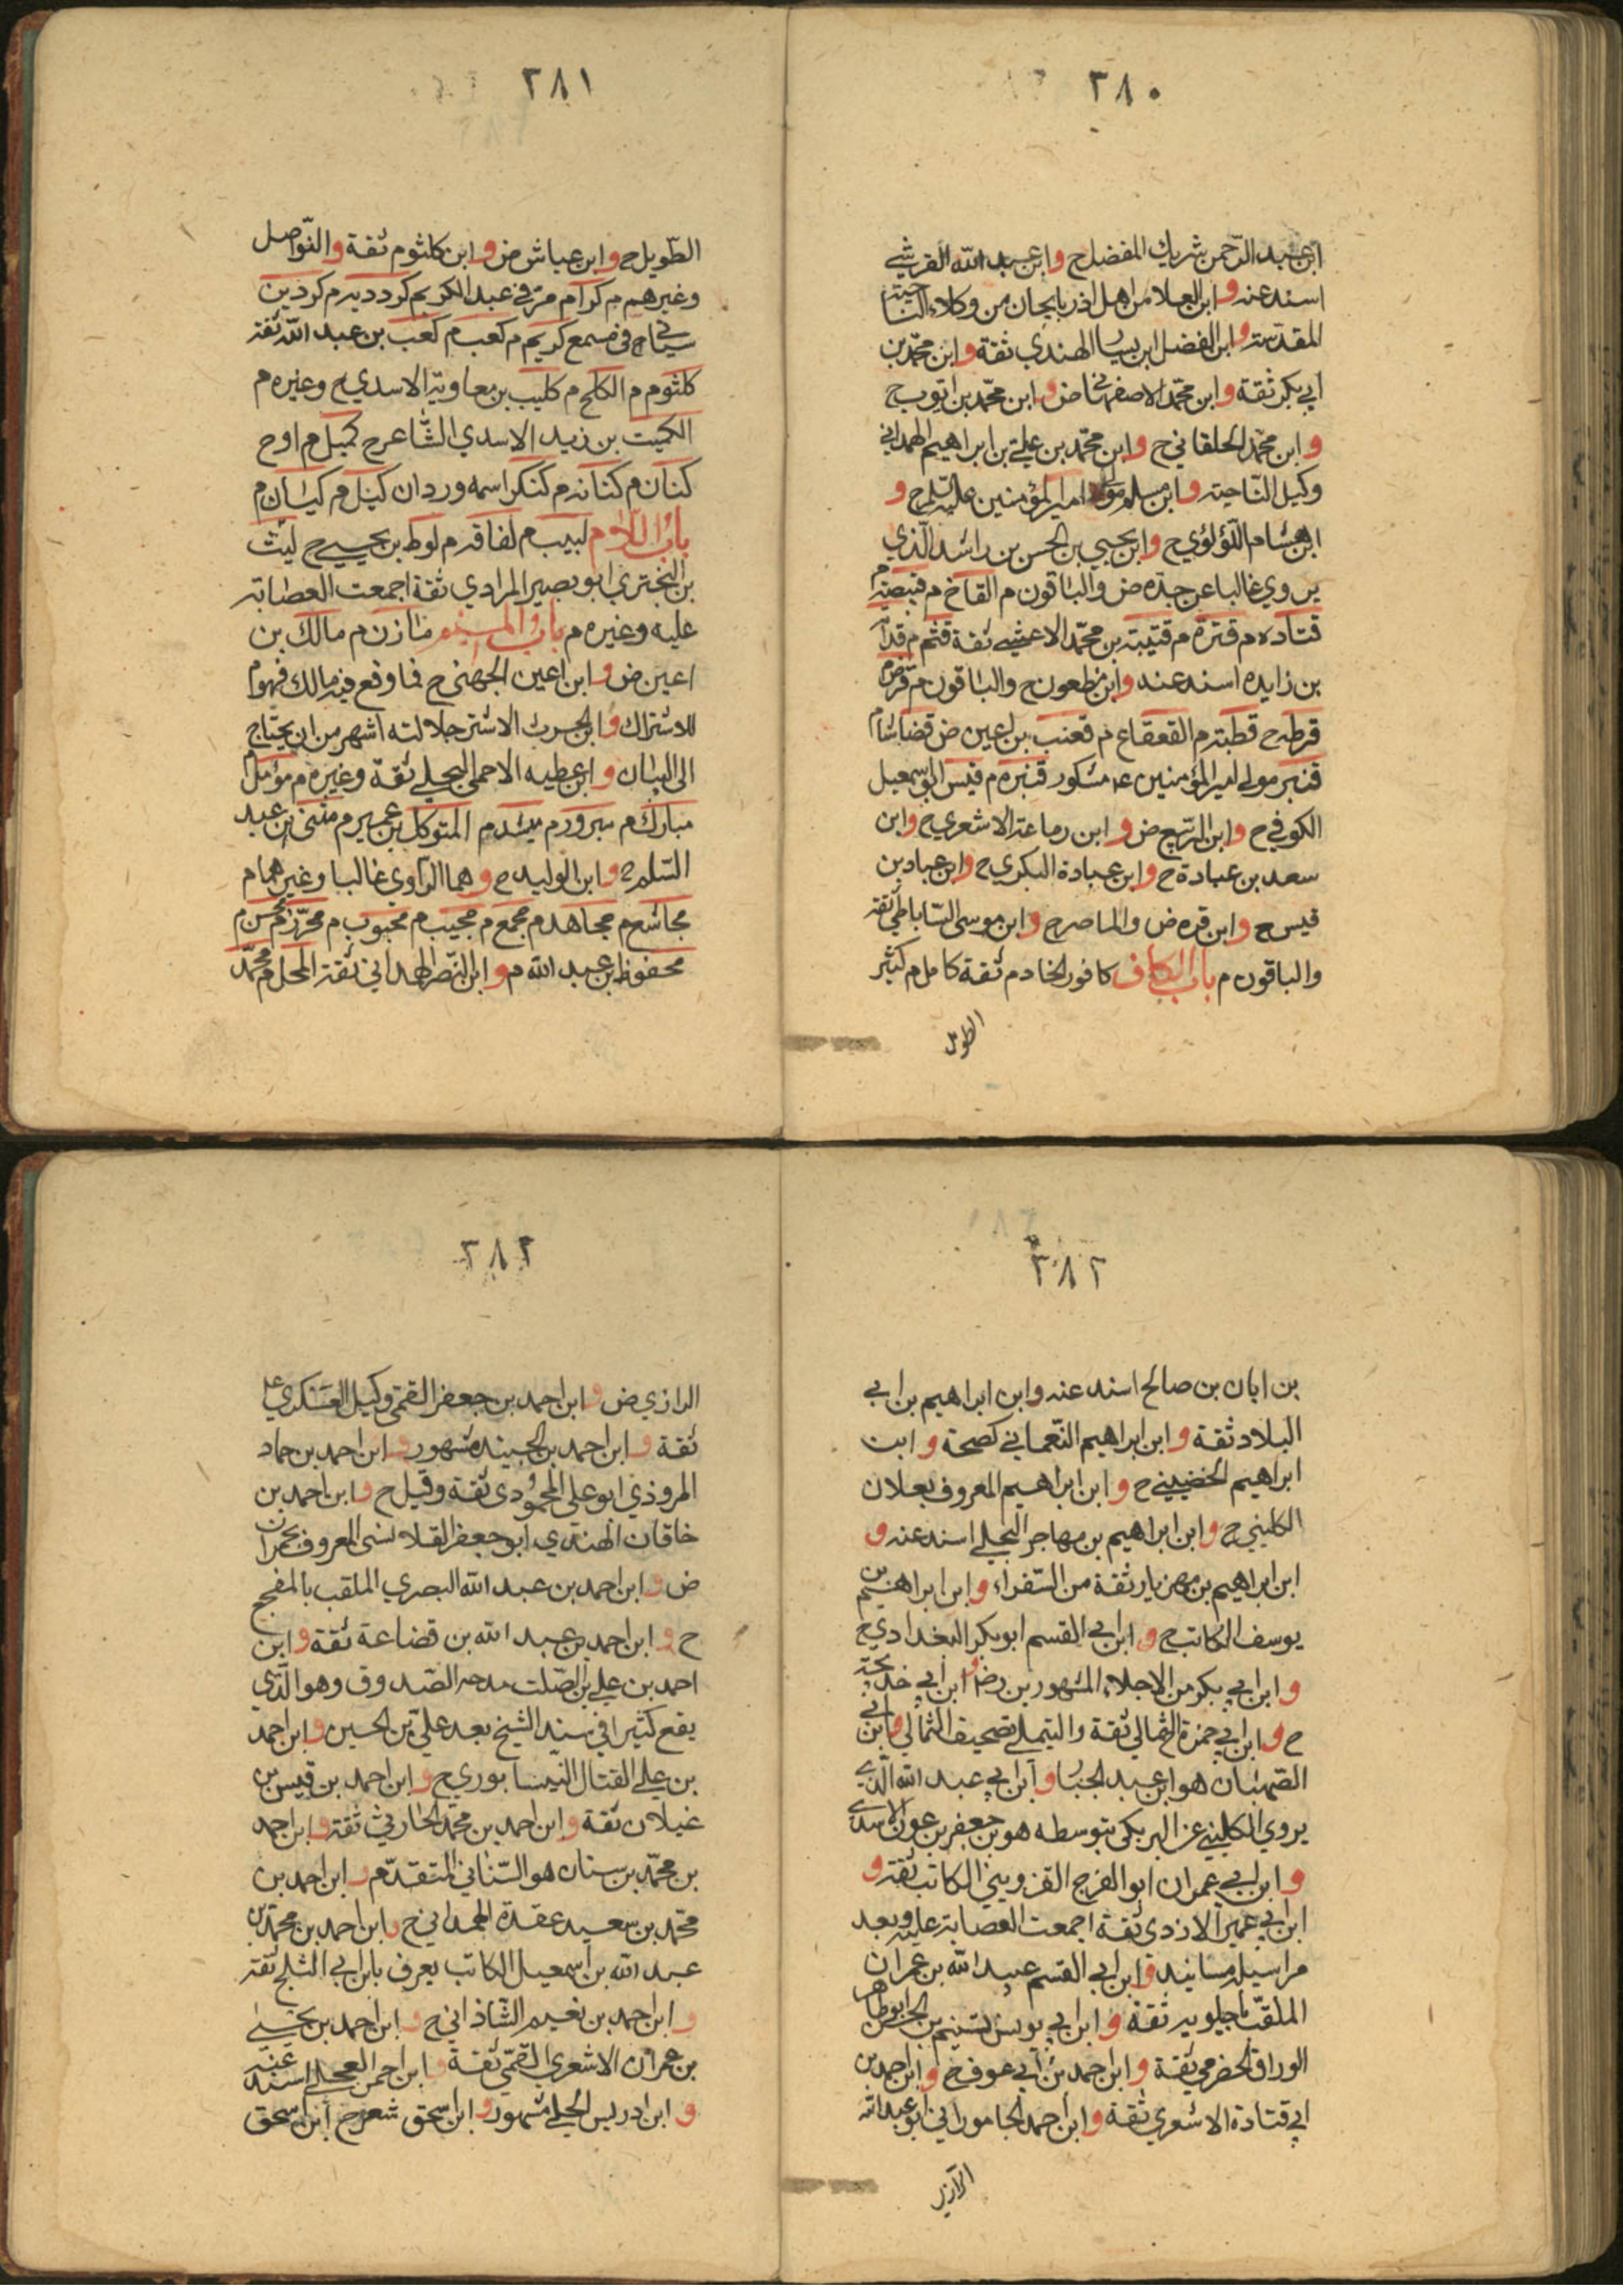 ٣٨٠
ابن عبد الرحمن شريك المفضل ح وابن عبيد الله القرشي
اسند عنه وابن العلا من اهل اذربايجان من وكلاء الناحية
المقدسة وابن الفضل ابن يسار الهندي ثقة وابن محمد بن
ابي بكر ثقة وابن محمد الاصفهاني ض وابن محمد بن ايوب ح
وابن محمد الخلقاني ح وابن محمد بن علي بن ابراهيم الهمداني
وكيل الناحية وابن مسلم مولا امير المؤمنين عليه السلم ح و
ابن هشام اللؤلؤي ح وابن يحيى بن الحسن بن راشد الذي
يروي غالبا عن جده ض والباقون م القاخ م قبيصة م
قتاده م قترة م قتيبة بن محمد الاعشى ثقة قثم م قدامة
بن زايده اسند عنه وابن مظعون ح والباقون م قرض م
قرطه ح قطبة م القعقاع م قعنب بن اعين ض
قنبر مولى امير المؤمنين ع مشكور قنبره م قيس ابو اسمعيل
الكوفي ح وابن الربيع ض وابن رماعة الاشعري ح وابن
سعد بن عبادة ح وابن عبادة البكري ح وابن عباد بن
قيس ح وابن قره ض والماصر ح وابن موسى الساباطي ثقة
والباقون م باب الكاف كافور الخادم ثقة كامل م كثير
الطويل
٣٨١
الطويل ح وابن عياش ض وابن كلثوم ثقة والنواصل
وغيرهم م كرام م مر في عبد الكريم كردديه م كردين
سياح في مسمع كريم م كعب م كعب بن عبد الله ثقة
كلثوم م الكلح م كليب بن معاوية الاسدي ح وغيره م
الكميت بن زيد الاسدي الشاعر ح كميل م اوح
كنان م كنانه م كنكر اسمه وردان كيل م كيسان م
باب اللام لبيب م لفاقه م لوط بن يحيى ح ليث
بن البختري ابو بصير المرادي ثقة اجمعت العصابة
عليه وغيره م باب الميم مازن م مالك بن
اعين ض وابن اعين الجهني ح فما وقع فيه مالك فهو م
للاشتراك وابن الحرث الاشتر جلالته اشهر من ان يحتاج
الى البيان وابن عطيه الاحمسي البجلي ثقة وغيره م مؤمل م
مبارك م مبرور م مبشر م المتوكل بن عمير م مثنى بن عبد
السلم ح وابن الوليد ح وهما الراوي غالبا وغيرهما م
مجاشع م مجاهد م مجمع م مجيب م محبوب م محرز م محسن م
محفوظ بن عبد الله م وابن النصر الهمداني ثقة المحل م محمد
٣٨٢
بن ابان بن صالح اسند عنه وابن ابراهيم بن ابي
البلاد ثقة وابن ابراهيم النعماني كصحة وابن
ابراهيم الحضيني ح وابن ابراهيم المعروف بعلان
الكليني ح وابن ابراهيم بن مهاجر البجلي اسند عنه و
ابن ابراهيم بن مهزيار ثقة من السفراء وابن ابراهيم بن
يوسف الكاتب ح وابن ابي القسم ابو بكر البغدادي ح
وابن ابي بكر من الاجلاء المشهورين رض وابن ابي خديجة
ح وابن ابي حمزة الثمالي ثقة والتيملي تصحيف الثمالي وابن ابي
الصهبان هو ابن عبد الجبار وابن ابي عبد الله الذي
يروي الكليني عن البرمكي بتوسطه هو بن جعفر بن عون الاسدي
وابن ابي عمران ابو الفرج القزويني الكاتب ثقة و
ابن ابي عمير الازدي ثقة اجمعت العصابة عليه وبعد
مراسيله مسانيد وابن ابي القسم عبيد الله بن عمران
الملقب ماجيلويه ثقة وابن ابي يونس تسنيم بن الحسن ابو طاهر
الوراق الحضرمي ثقة وابن احمد بن ابي عوف ح وابن احمد بن
ابي قتادة الاشعري ثقة وابن احمد الجاموراني ابو عبد الله
الرازي
٣٨٢
الرازي ض وابن احمد بن جعفر القمي وكيل العسكري ع
ثقة وابن احمد بن الجنيد مشهور وابن احمد بن حماد
المروذي ابو علي المحمودي ثقة وقيل ح وابن احمد بن
خاقان النهدي ابو جعفر القلانسي المعروف بحمدان
ض وابن احمد بن عبد الله البصري الملقب بالمفجع
ح وابن احمد بن عبد الله بن قضاعة ثقة وابن
احمد بن علي بن الصلت مدحه الصدوق وهو الذي
يقع كثيرا في سند الشيخ بعد علي بن الحسين وابن احمد
بن علي القتال النيسابوري ح وابن احمد بن قيس بن
غيلان ثقة وابن احمد بن محمد الحارثي ثقة وابن احمد
بن محمد بن سنان هو السناني المتقدم وابن احمد بن
محمد بن سعيد عقدة الهمداني ح وابن احمد بن محمد بن
عبد الله بن اسمعيل الكاتب يعرف بابن ابي الثلج ثقة
وابن احمد بن نعيم الشاذاني ح وابن احمد بن يحيى
بن عمران الاشعري القمي ثقة وابن احمر العجلي اسند عنه
وابن ادريس الحلي مشهور وابن اسحق شعر ح ابن اسحق